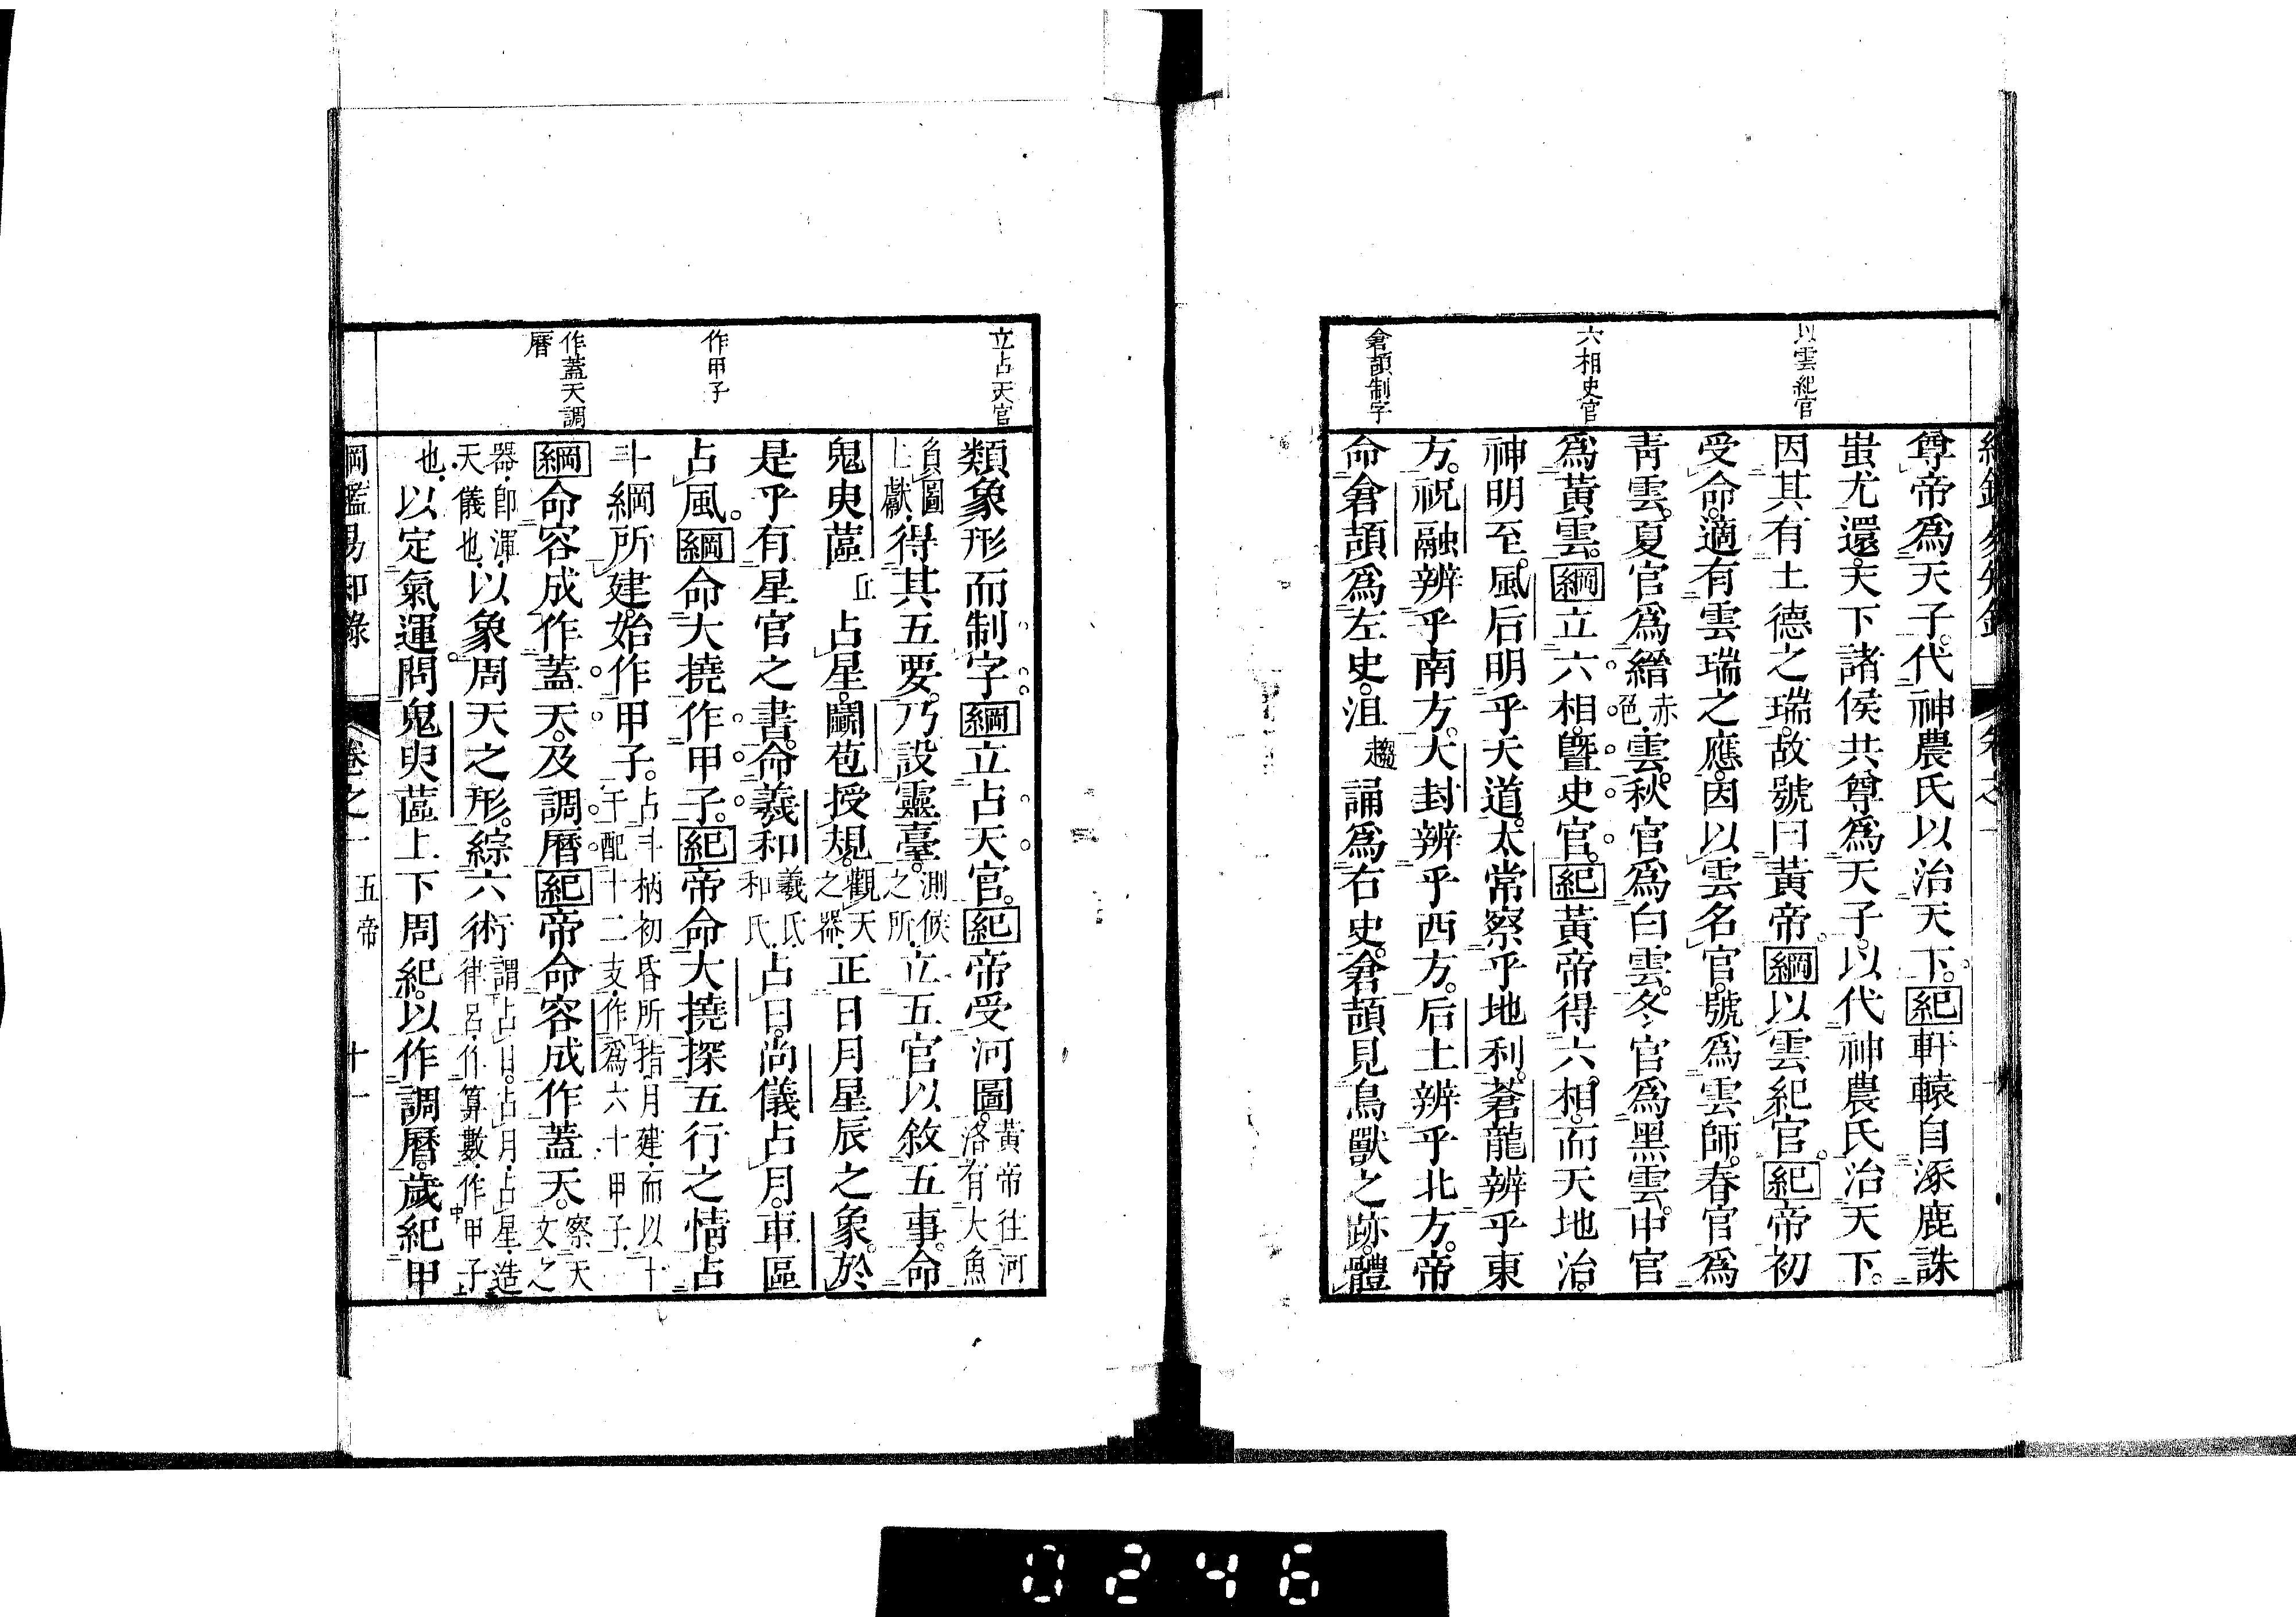 綱鑑易知錄 卷之一
以雲紀官
六相史官
倉頡制字
尊帝爲天子。代神農氏以治天下。紀軒轅自涿鹿誅
蚩尤還。天下諸侯共尊爲天子。以代神農氏治天下。
因其有土德之瑞。故號曰黃帝。綱以雲紀官。紀帝初
受命。適有雲瑞之應。因以雲名官。號爲雲師。春官爲
青雲。夏官爲縉赤色雲。秋官爲白雲。冬官爲黑雲。中官
爲黃雲。綱立六相。曁史官。紀黃帝得六相。而天地治。
神明至。風后明乎天道。太常察乎地利。蒼龍辨乎東
方。祝融辨乎南方。大封辨乎西方。后土辨乎北方。帝
命倉頡爲左史。沮趨誦爲右史。倉頡見鳥獸之跡。體
立占天官
作甲子
作蓋天調
曆
類象形而制字。綱立占天官。紀帝受河圖。黃帝往河洛。有大魚
負圖上獻。得其五要。乃設靈臺。測候之所。立五官以敘五事。命
鬼臾蓲丘占星。鬭苞授規。觀天之器。正日月星辰之象。於
是乎有星官之書。命羲和羲氏和氏。占日。尚儀占月。車區
占風。綱命大撓作甲子。紀帝命大撓探五行之情。占
斗綱所建。始作甲子。占斗柄初昏所指月建。而以十干配十二支。作爲六十甲子。
綱命容成作蓋天。及調曆。紀帝命容成作蓋天。察天文之
器。卽渾天儀也。以象周天之形。綜六術。謂占日。占月。占星。造律呂。作算數。作甲子
也。以定氣運。問鬼臾蓲上下周紀。以作調曆。歲紀甲
綱鑑易知錄 卷之一 五帝 十一
0246